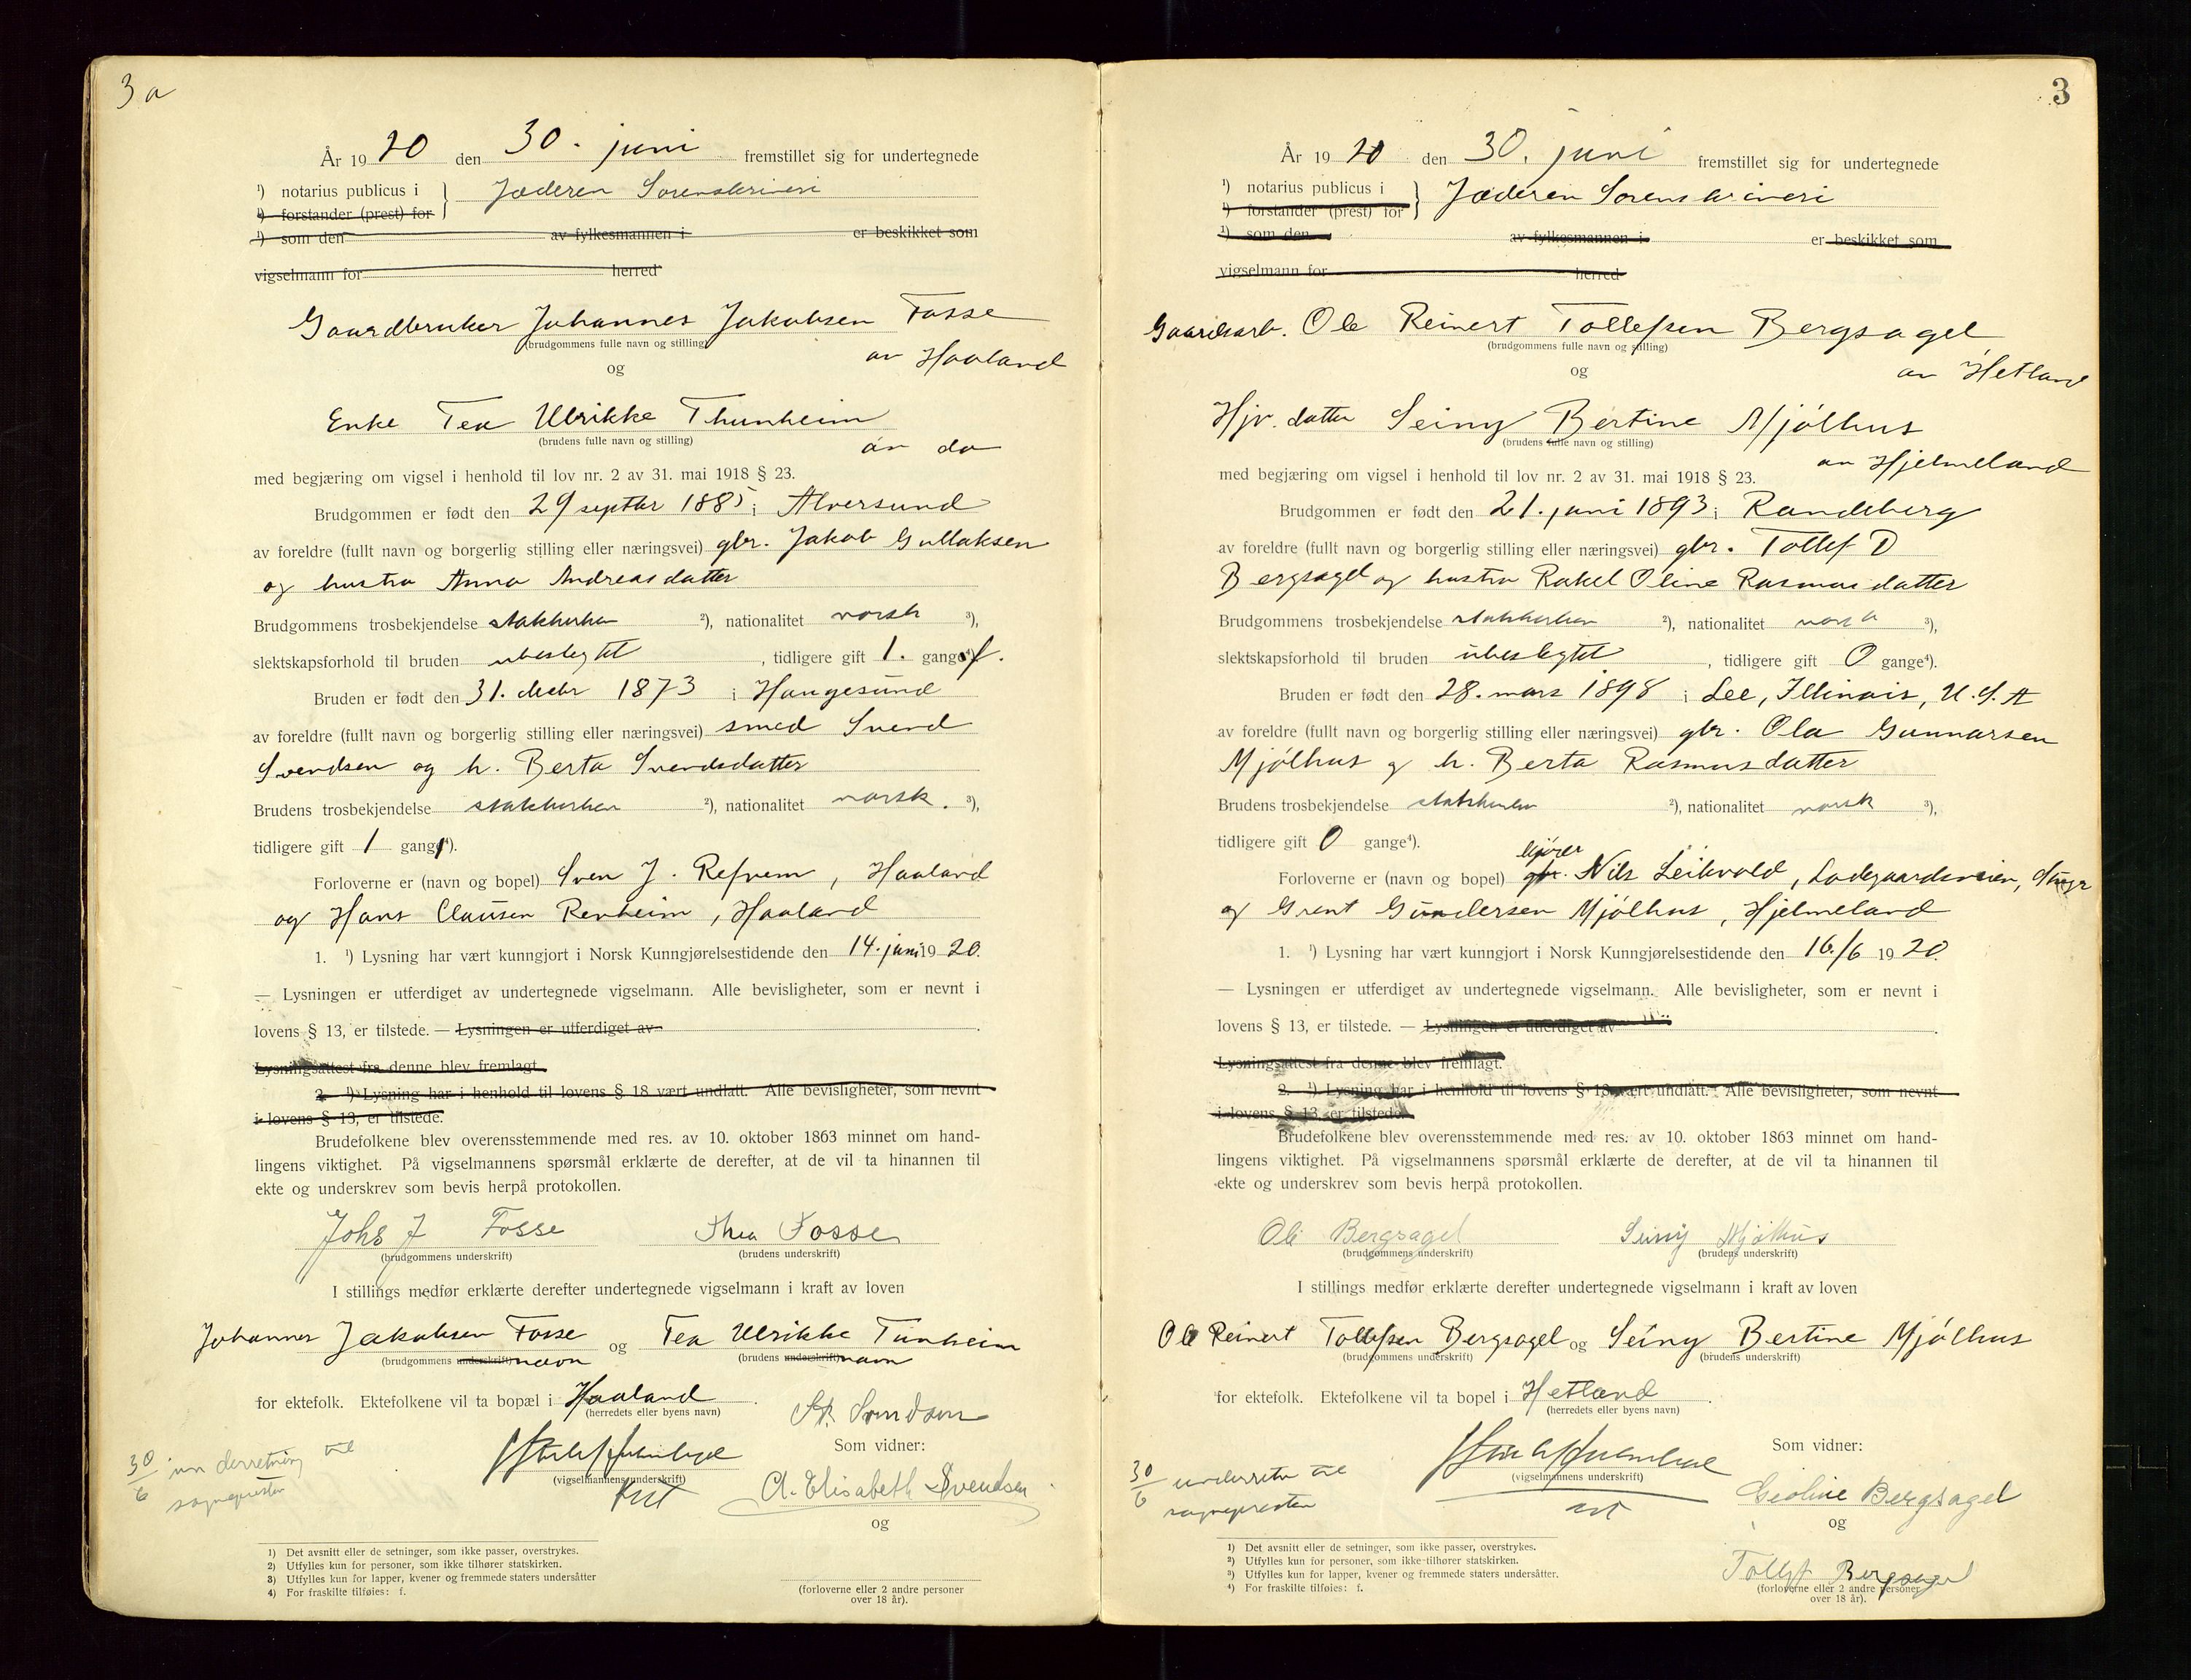 3a
År 1920 den 30. juni fremstillet sig for undertegnede
¹) notarius publicus i } Jæderen Sorenskriveri
¹) forstander (prest) for
¹) som den av fylkesmannen i er beskikket som
vigselmann for herred
Gaardbruker Johannes Jakobsen Fosse
(brudgommens fulle navn og stilling)
av Haaland
og
Enke Tea Ulrikke Thunheim
(brudens fulle navn og stilling)
av do
med begjæring om vigsel i henhold til lov nr. 2 av 31. mai 1918 § 23.
Brudgommen er født den 29 septbr 1885 i Alversund
av foreldre (fullt navn og borgerlig stilling eller næringsvei) gbr. Jakob Gullaksen
og hustru Anna Andreasdatter
Brudgommens trosbekjendelse statskirken ²), nationalitet norsk ³),
slektskapsforhold til bruden ubeslegtet, tidligere gift 1. gang⁴) f.
Bruden er født den 31. decbr 1873 i Haugesund
av foreldre (fullt navn og borgerlig stilling eller næringsvei) smed Svend
Svendsen og h. Berta Svendsdatter
Brudens trosbekjendelse statskirken ²), nationalitet norsk. ³),
tidligere gift 1 gang⁴).
Forloverne er (navn og bopel) Sven J. Refvem, Haaland
og Hans Clausen Renheim, Haaland
1. ¹) Lysning har vært kunngjort i Norsk Kunngjørelsestidende den 14. juni 1920.
— Lysningen er utferdiget av undertegnede vigselmann. Alle bevisligheter, som er nevnt i
lovens § 13, er tilstede. — Lysningen er utferdiget av
Lysningsattest fra denne blev fremlagt.
2. ¹) Lysning har i henhold til lovens § 18 vært undlatt. Alle bevisligheter, som nevnt
i lovens § 13, er tilstede.
Brudefolkene blev overensstemmende med res. av 10. oktober 1863 minnet om hand-
lingens viktighet. På vigselmannens spørsmål erklærte de derefter, at de vil ta hinannen til
ekte og underskrev som bevis herpå protokollen.
Johs J Fosse Thea Fosse
(brudgommens underskrift) (brudens underskrift)
I stillings medfør erklærte derefter undertegnede vigselmann i kraft av loven
Johannes Jakobsen Fosse og Tea Ulrikke Tunheim
(brudgommens underskrift) navn (brudens underskrift) navn
for ektefolk. Ektefolkene vil ta bopæl i Haaland.
(herredets eller byens navn)
Svendsen
Som vidner:
30/6 underretning til
sognepresten
(vigselmannens underskrift)
A. Elisabeth Svendsen
og
1) Det avsnitt eller de setninger, som ikke passer, overstrykes.
2) Utfylles kun for personer, som ikke tilhører statskirken.
3) Utfylles kun for lapper, kvener og fremmede staters undersåtter
4) For fraskilte tilføies: f.
(forloverne eller 2 andre personer
over 18 år).
3
År 1920 den 30. juni fremstillet sig for undertegnede
¹) notarius publicus i } Jæderen Sorenskriveri
¹) forstander (prest) for
¹) som den av fylkesmannen i er beskikket som
vigselmann for herred
Gaardsarb. Ole Reinert Tollefsen Bergsagel
(brudgommens fulle navn og stilling)
av Hetland
og
Hjv. datter Seiny Bertine Mjölhus
(brudens fulle navn og stilling)
av Hjelmeland
med begjæring om vigsel i henhold til lov nr. 2 av 31. mai 1918 § 23.
Brudgommen er født den 21. juni 1893 i Randeberg
av foreldre (fullt navn og borgerlig stilling eller næringsvei) gbr. Tollef D
Bergsagel og hustru Rakel Oline Rasmusdatter
Brudgommens trosbekjendelse statskirken ²), nationalitet norsk ³),
slektskapsforhold til bruden ubeslegtet, tidligere gift 0 gange⁴).
Bruden er født den 28. mars 1898 i Lee, Illinois, U.S.A
av foreldre (fullt navn og borgerlig stilling eller næringsvei) gbr. Ola Gunnarsen
Mjölhus og h. Berta Rasmusdatter
Brudens trosbekjendelse statskirken ²), nationalitet norsk ³),
tidligere gift 0 gange⁴).
Forloverne er (navn og bopel) kjører gbr. Nils Leikvold, Ladegaardsveien,
og Grent Gundersen Mjölhus, Hjelmeland
1. ¹) Lysning har vært kunngjort i Norsk Kunngjørelsestidende den 16./6 1920.
— Lysningen er utferdiget av undertegnede vigselmann. Alle bevisligheter, som er nevnt i
lovens § 13, er tilstede. — Lysningen er utferdiget av
Lysningsattest fra denne blev fremlagt.
2. ¹) Lysning har i henhold til lovens § 18 vært undlatt. Alle bevisligheter, som nevnt
i lovens § 13, er tilstede.
Brudefolkene blev overensstemmende med res. av 10. oktober 1863 minnet om hand-
lingens viktighet. På vigselmannens spørsmål erklærte de derefter, at de vil ta hinannen til
ekte og underskrev som bevis herpå protokollen.
Ole Bergsagel Seiny Mjølhus
(brudgommens underskrift) (brudens underskrift)
I stillings medfør erklærte derefter undertegnede vigselmann i kraft av loven
Ole Reinert Tollefsen Bergsagel og Seiny Bertine Mjölhus
(brudgommens underskrift) (brudens underskrift)
for ektefolk. Ektefolkene vil ta bopel i Hetland.
(herredets eller byens navn)
Som vidner:
30/6 underretn til
sognepresten
(vigselmannens underskrift)
Geoline Bergsagel
og
Tollef Bergsagel
1) Det avsnitt eller de setninger, som ikke passer, overstrykes.
²) Utfylles kun for personer, som ikke tilhører statskirken.
³) Utfylles kun for lapper, kvener og fremmede staters undersåtter.
⁴) For fraskilte tilføies: f.
(forloverne eller 2 andre personer
over 18 år).